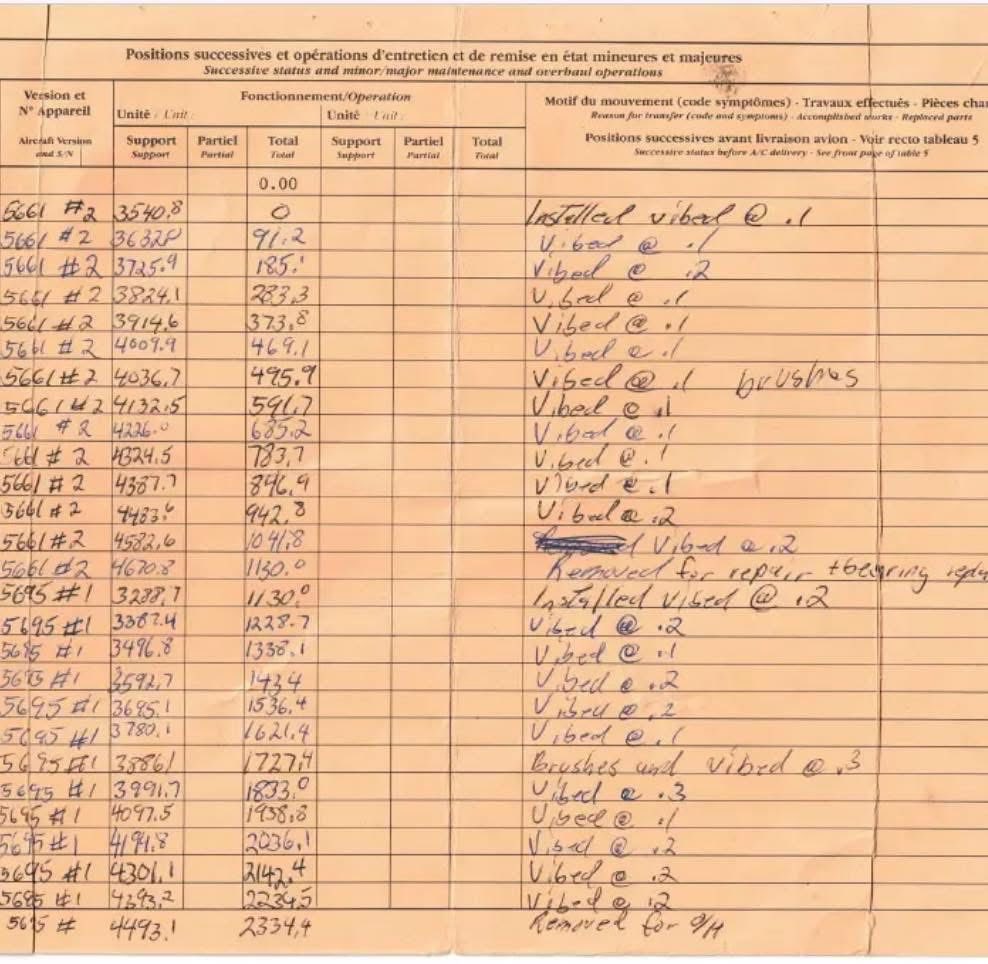 Positions successives et opérations d'entretien et de remise en état mineures et majeures
Successive status and minor/major maintenance and overhaul operations
Version et N° Appareil
Aircraft Version and S/N
Fonctionnement/Operation
Unité / Unit: Unité / Unit:
Support Support Partiel Partial Total Total Support Support Partiel Partial Total Total
Motif du mouvement (code symptômes) - Travaux effectués - Pièces
Reason for transfer (code and symptoms) - Accomplished works - Replaced parts
Positions successives avant livraison avion - Voir recto tableau 5
Successive status before A/C delivery - See front page of table 5
0.00
5661 #2 3540.8 0 Installed vibed @ .1
5661 #2 3632.0 91.2 Vibed @ .1
5661 #2 3725.9 185.1 Vibed @ .2
5661 #2 3824.1 283.3 Vibed @ .1
5661 #2 3914.6 373.8 Vibed @ .1
5661 #2 4009.9 469.1 Vibed @ .1
5661 #2 4036.7 495.9 Vibed @ .1 brushes
5661 #2 4132.5 591.7 Vibed @ .1
5661 #2 4226.0 685.2 Vibed @ .1
5661 #2 4324.5 783.7 Vibed @ .1
5661 #2 4387.7 846.9 Vibed @ .1
5661 #2 4483.6 942.8 Vibed @ .2
5661 #2 4582.6 1041.8 Vibed @ .2
5661 #2 4670.8 1130.0 Removed for repair + bearing
5695 #1 3288.7 1130.0 Installed vibed @ .2
5695 #1 3387.4 1228.7 Vibed @ .2
5695 #1 3496.8 1338.1 Vibed @ .1
5695 #1 3592.7 1434 Vibed @ .2
5695 #1 3695.1 1536.4 Vibed @ .2
5695 #1 3780.1 1621.4 Vibed @ .1
5695 #1 3886.1 1727.4 Brushes and vibed @ .3
5695 #1 3991.7 1833.0 Vibed @ .3
5695 #1 4097.5 1938.8 Vibed @ .1
5695 #1 4194.8 2036.1 Vibed @ .2
5695 #1 4301.1 2142.4 Vibed @ .2
5695 #1 4393.2 2234.5 Vibed @ .2
5695 # 4493.1 2334.4 Removed for O/H